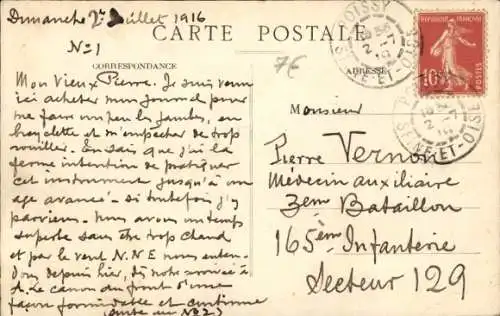 Dimanche 2 Juillet 1916
No 1
CARTE POSTALE
7€
CORRESPONDANCE
ADRESSE
POISSY
SEINE-ET-OISE
REPUBLIQUE FRANÇAISE
10
POSTES
SEINE-ET-OISE
Mon Vieux Pierre. Je suis venu
ici acheter mon journal pour
me faire un peu les jambes, en
bicyclette et m'empêcher de trop
rouiller. Tu sais que j'ai la
ferme intention de pratiquer
cet instrument jusqu'à un
age avancé - si toutefois j'y
parviens. Nous avons un temps
superbe sans être trop chaud
et par le vent N.N.E nous enten-
dons depuis hier, dès notre arrivée à
A. le canon du front d'une
façon formidable et continue
(suite au No 2)
Monsieur
Pierre Vernon
Médecin auxiliaire
3em Bataillon
165èm Infanterie
Secteur 129